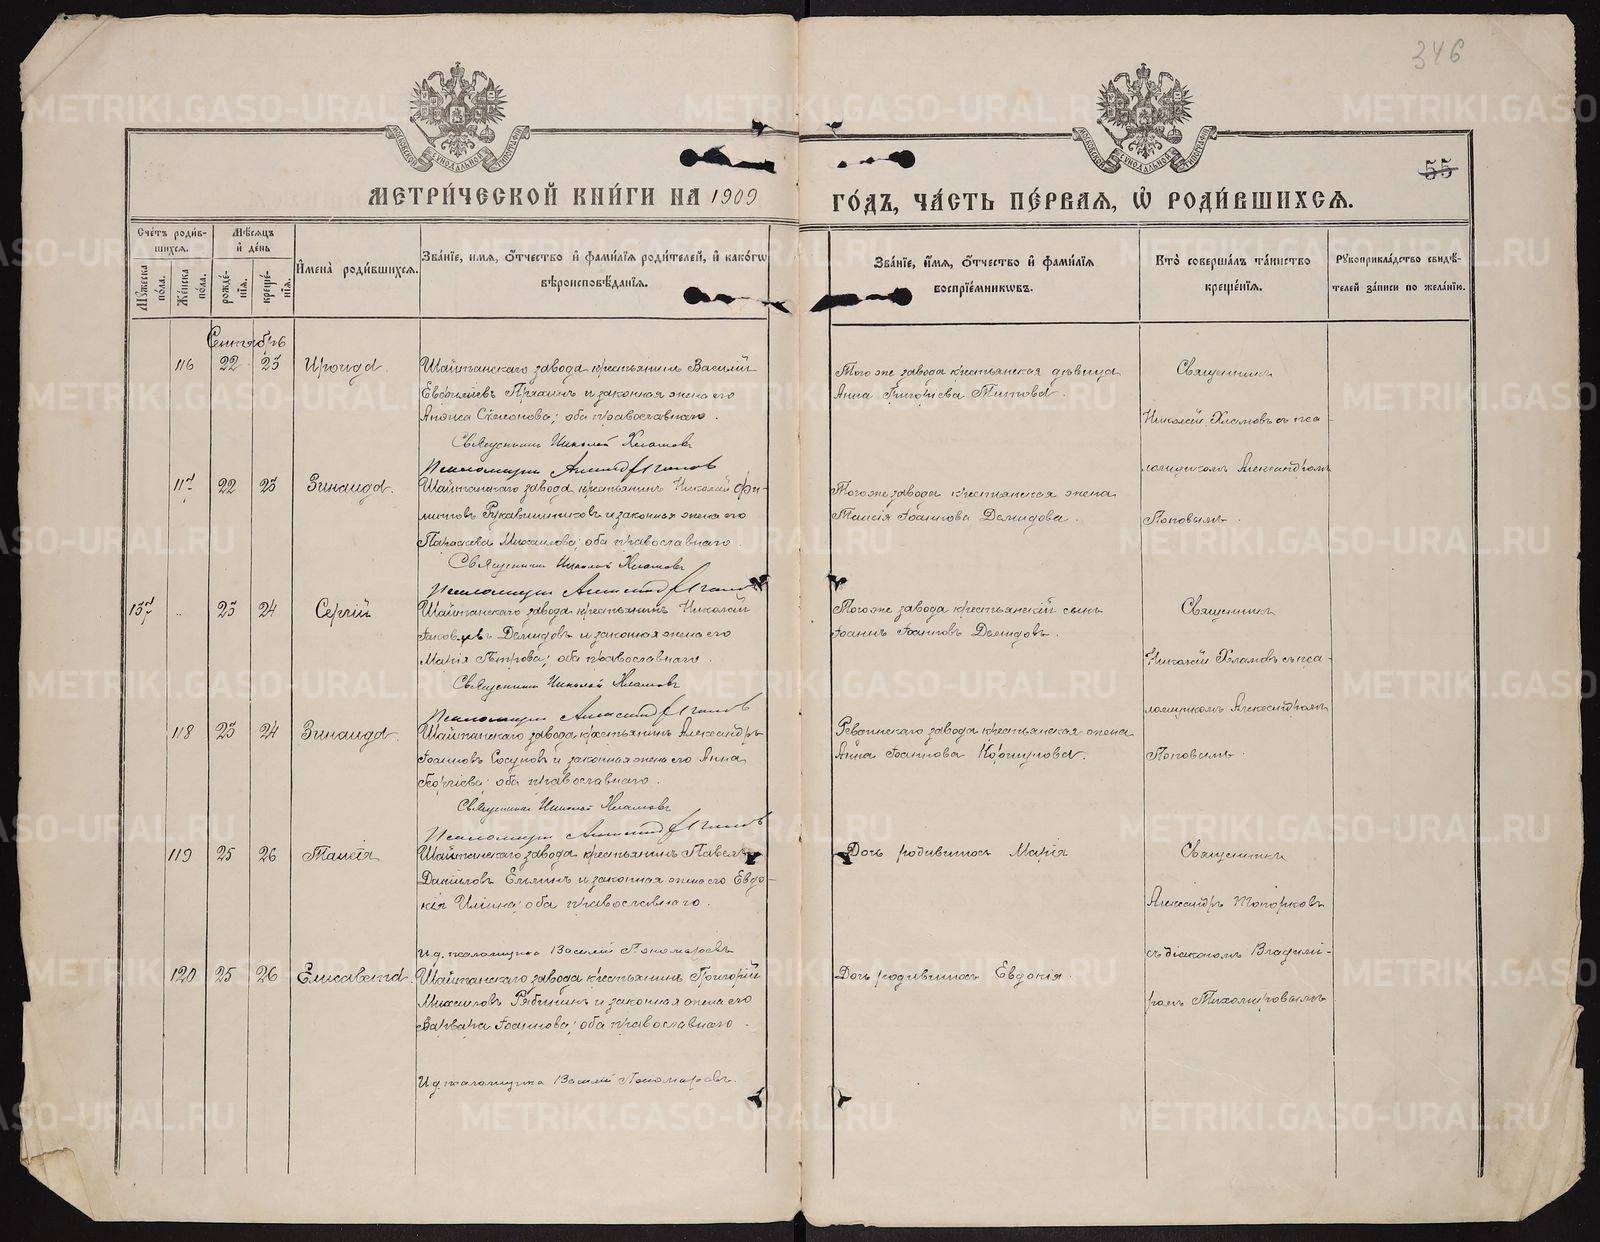 346
55
МОСКОВСКОЙ СѴНОДАЛЬНОЙ ТИПОГРАФІИ
МОСКОВСКОЙ СѴНОДАЛЬНОЙ ТИПОГРАФІИ
МЕТРИ́ЧЕСКОЙ КНИ́ГИ НА 1909 ГО́ДЪ, ЧА́СТЬ ПЕ́РВАѦ, Ѡ҆ РОДИ́ВШИХСѦ.
Сче́тъ роди́в-
шихсѧ.
Мꙋ́жеска по́ла.
Же́нска по́ла.
Мѣ́сѧцъ и҆ де́нь
рожде́-
нїѧ.
креще́-
нїѧ.
И҆мена̀ роди́вшихсѧ.
Зва́нїе, и҆мѧ, ѻ҆́тчество и҆ фами́лїѧ роди́телей, и҆ како́гѡ
вѣроисповѣ́данїѧ.
Зва́нїе, и҆́мѧ, ѻ҆́тчество и҆ фами́лїѧ
воспрїе́мникѡвъ.
Кто̀ соверша́лъ та́инство
креще́нїѧ.
Рꙋкоприкла́дство свидѣ́-
телей за́писи по жела́нїю.
Сентябрь
116 22 23 Ираида.
Шайтанскаго завода крестьянинъ Василій
Евфиміевъ Пряхинъ и законная жена его
Анфиса Симонова; оба православнаго.
Священникъ Николай Хламовъ
Псаломщикъ Александръ Поповъ
Того же завода крестьянская дѣвица
Анна Григориева Титова.
Священникъ
Николай Хламовъ съ пса-
ломщикомъ Александромъ
Поповымъ.
117 22 23 Зинаида.
Шайтанскаго завода крестьянинъ Николай
Рукавишниковъ и законная жена его
Параскева Михаилова; оба православнаго.
Священникъ Николай Хламовъ
Псаломщикъ Александръ Поповъ
Того же завода крестьянская жена
Таисія Іоаннова Демидова.
137 " 23 24 Сергій
Шайтанскаго завода крестьянинъ Николай
Іаковлевъ Демидовъ и законная жена его
Марія Петрова; оба православнаго.
Священникъ Николай Хламовъ
Псаломщикъ Александръ Поповъ
Того же завода крестьянскій сынъ
Іоаннъ Іоанновъ Демидовъ.
Священникъ
Николай Хламовъ съ пса-
ломщикомъ Александромъ
Поповымъ.
118 23 24 Зинаида.
Шайтанскаго завода крестьянинъ Александръ
Іоанновъ Сосуновъ и законная жена его Анна
Георгіева; оба православнаго.
Священникъ Николай Хламовъ
Псаломщикъ Александръ Поповъ
Ревдинскаго завода крестьянская жена
Анна Іоаннова Коршунова.
119 25 26 Таисія
Шайтанскаго завода крестьянинъ Павелъ
Даніиловъ Емлинъ и законная жена его Евдо-
кія Иліина; оба православнаго.
И. д. псаломщика Василій Пономаревъ
Дочь родившаяся Марія
Священникъ
Александръ Топорковъ
съ діакономъ Владими-
ромъ Тихомировымъ
120 25 26 Елисавета.
Шайтанскаго завода крестьянинъ Григорій
Михаиловъ Рябининъ и законная жена его
Варвара Іоаннова; оба православнаго.
И. д. псаломщика Василій Пономаревъ.
METRIKI.GASO-URAL.RU